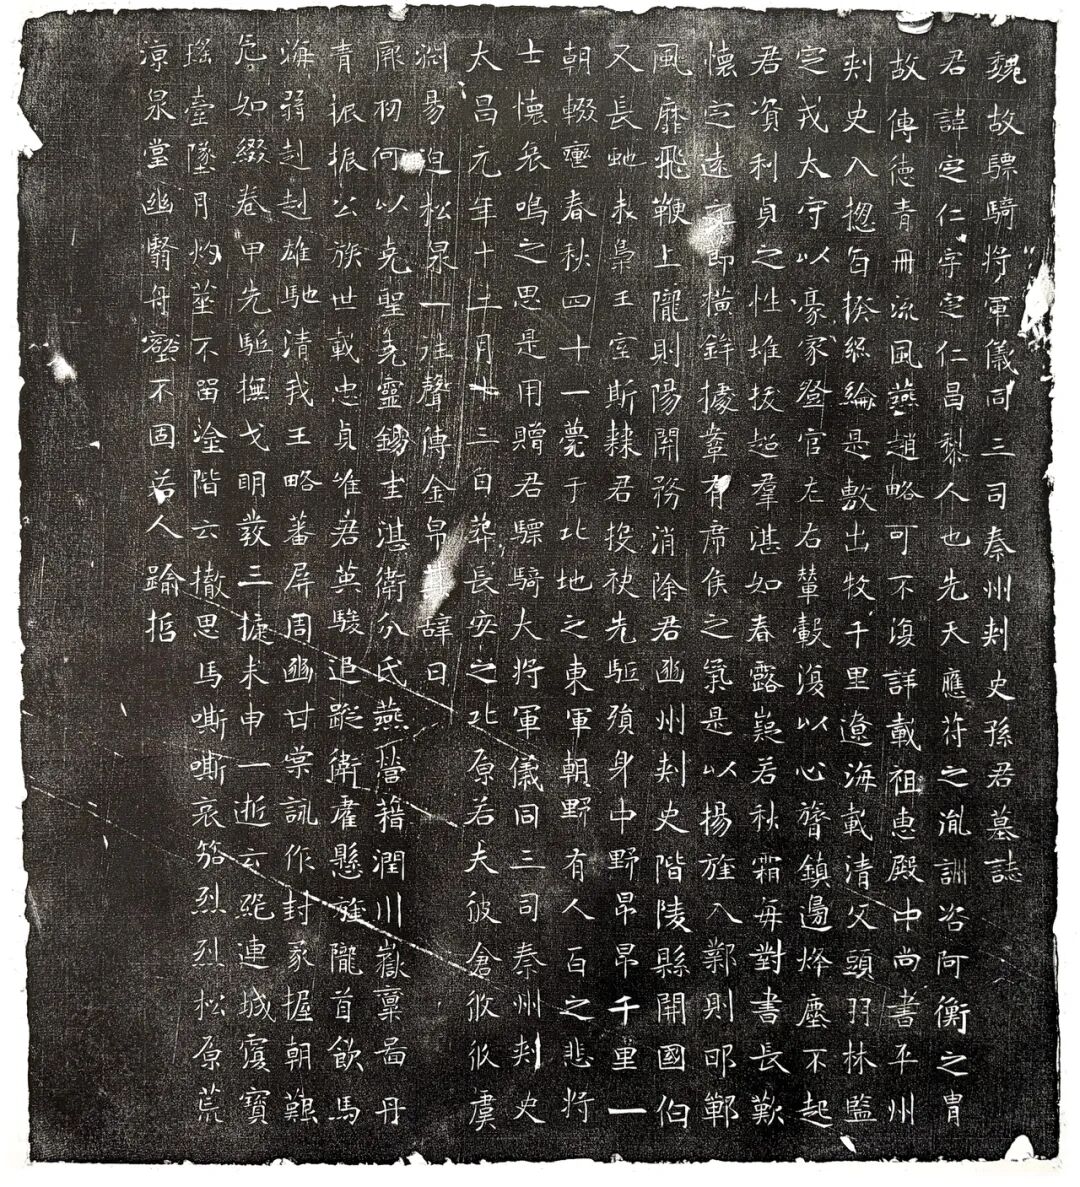 魏故驃騎將軍儀同三司秦州刺史孫君墓誌
君諱定仁字定仁昌黎人也先天應符之胤訓咨阿衡之胄
故傳德青冊流風燕趙略可不復詳載祖惠殿中尚書平州
刺史入揔百揆絲綸是敷出牧千里遼海載清父頭羽林監
定戎太守以豪家登官左右輦轂復以心膂鎮邊烽塵不起
君資利貞之性堆拔超羣湛如春露嶷若秋霜每對書長歎
懷定遠之即橫鉾據鞌有席俟之氣是以揚旌入鄴則邯鄲
風靡飛鞭上隴則陽關務消除君幽州刺史階陵縣開國伯
又長虵未梟王室斯隸君投袂先駈殞身中野昂昂千里一
朝輟壥春秋四十一薨于北地之東軍朝野有人百之悲將
士懷哀鳴之思是用贈君驃騎大將軍儀同三司秦州刺史
太昌元年十二月十三日葬長安之北原若夫彼倉攸攸虞
淵易迫松泉一往聲傳金帛辭曰
厥初何以堯聖堯靈錫圭湛衛分氏燕營籍潤川嶽稟畐丹
青振振公族世載忠貞唯君英駿追蹤衛霍懸旌隴首飲馬
海弱赳赳雄馳清我王略蕃屏周幽甘棠詠作封豕握朝艱
危如綴卷甲先駈撫戈明發三捷未申一逝云跪連城霣寶
瑶臺墜月灼塋不留淦階云撤思馬嘶嘶哀笳烈烈松原荒
涼泉堂幽翳舟壑不固若人踰悊